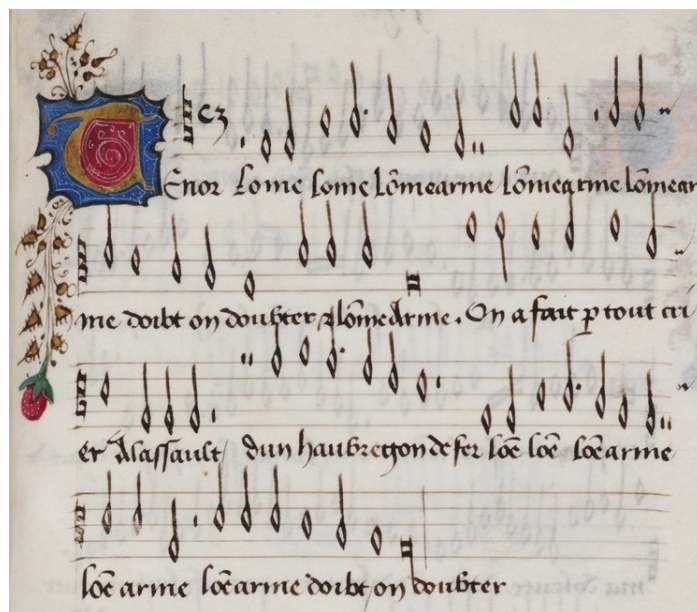 Tenor Lome lome lõmearme lõmearme lõmear
me doibt on doubter lõmearme. On a fait p tout cri
er Alassault dun haubregon de fer lõe lõe lõe arme
lõe arme lõe arme doibt on doubter